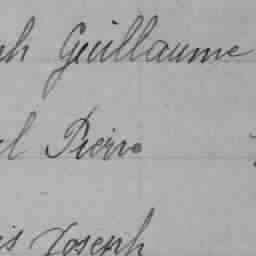 Guillaume
Pierre
Joseph